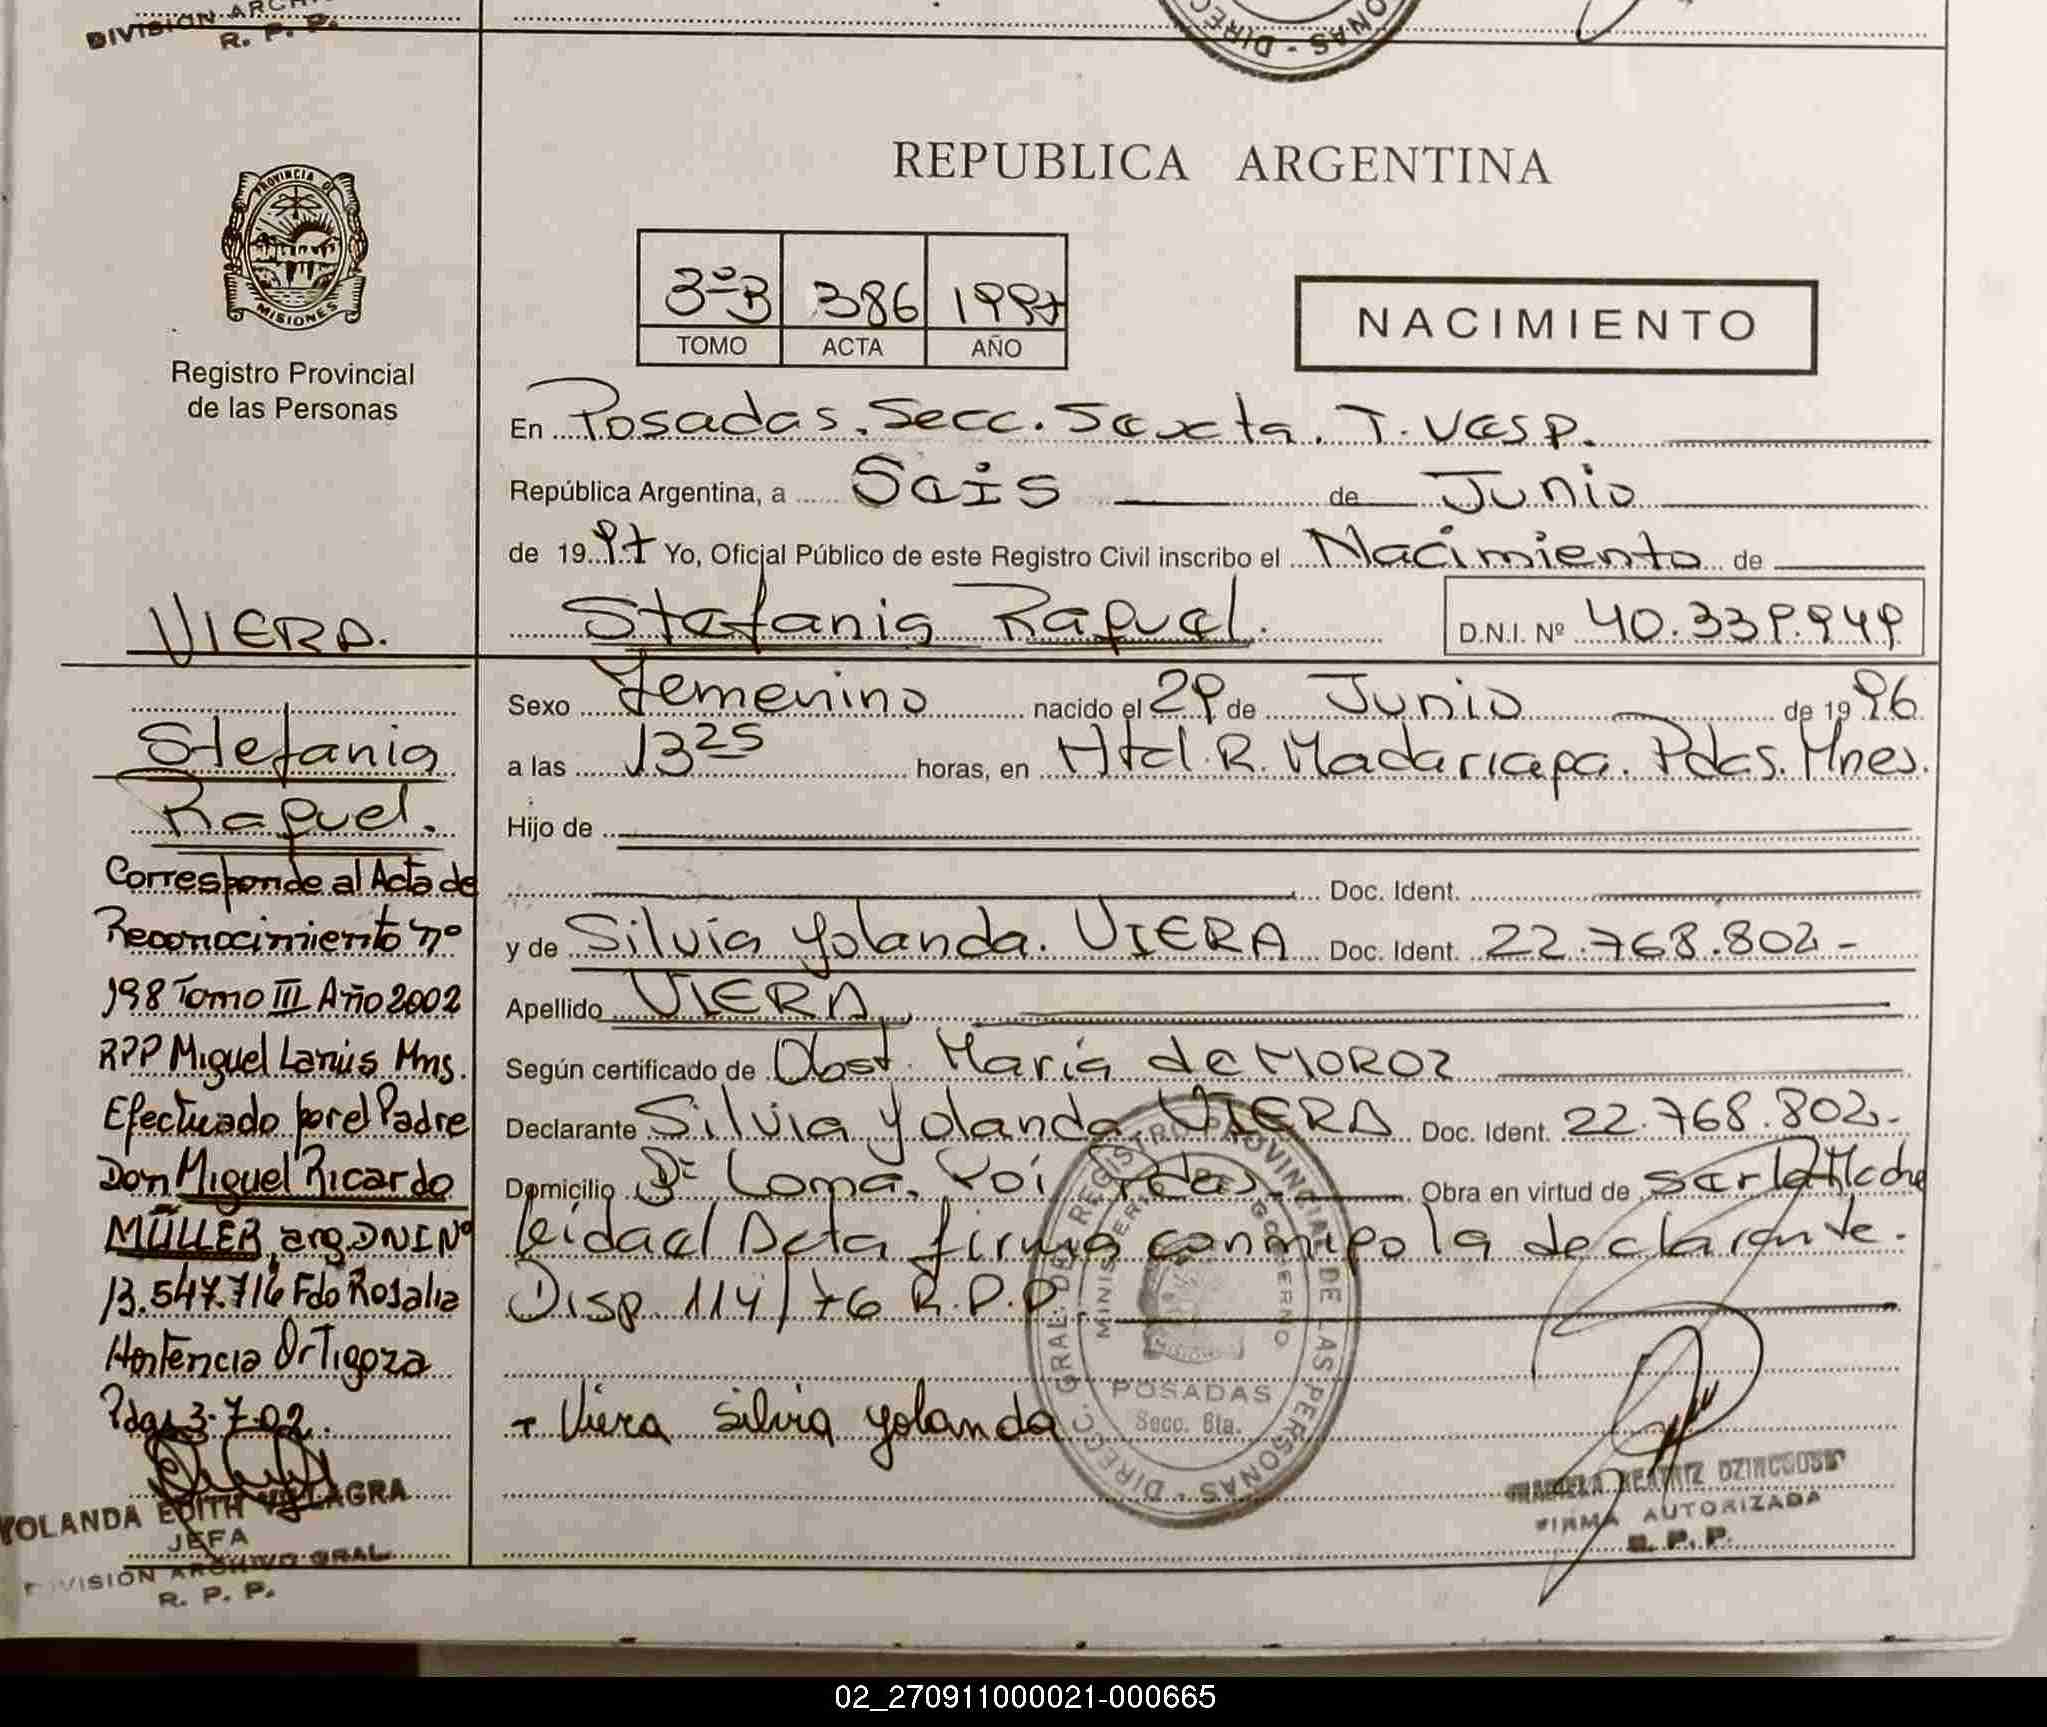 DIVISION ARCH
R. P. P.
DIREC
ONAS -
PROVINCIA DE
MISIONES
Registro Provincial
de las Personas
VIERA.
Stefania
Raquel.
Corresponde al Acta de
Reconocimiento nº
198 Tomo III Año 2002
RPP Miguel Lanús Mns.
Efectuado por el Padre
Don Miguel Ricardo
MÜLLER, arg. DNI Nº
13.547.716 Fdo Rosalia
Hortencia Ortigoza
Pdas 3-7-02.
YOLANDA EDITH VILLAGRA
JEFA
DIVISION ARCHIVO GRAL.
R. P. P.
REPUBLICA ARGENTINA
3ºB 386 1997
TOMO ACTA AÑO
NACIMIENTO
En Posadas. Secc. Sexta. T. Vesp.
República Argentina, a Seis de Junio
de 19 97 Yo, Oficial Público de este Registro Civil inscribo el Nacimiento de
Stefania Raquel. D.N.I. Nº 40.339.949
Sexo Femenino nacido el 29 de Junio de 19 96
a las 13 25 horas, en Htal. R. Madariaga. Pdas. Mnes.
Hijo de
Doc. Ident.
y de Silvia Yolanda. VIERA Doc. Ident. 22.768.802-
Apellido VIERA
Según certificado de Obst. María de MOROZ
Declarante Silvia Yolanda VIERA Doc. Ident. 22.768.802-
Domicilio Bº Loma. Poí Pdas. Obra en virtud de ser la Madre
leida el Acta firma conmigo la declarante.
Disp. 114/76 R.P.P.
Viera Silvia Yolanda
DIRECC. GRAL. DE REGISTRO PROVINCIAL DE LAS PERSONAS -
MINISTERIO GOBIERNO
POSADAS
Secc. 6ta.
BEATRIZ
FIRMA AUTORIZADA
R. P. P.
02_270911000021-000665